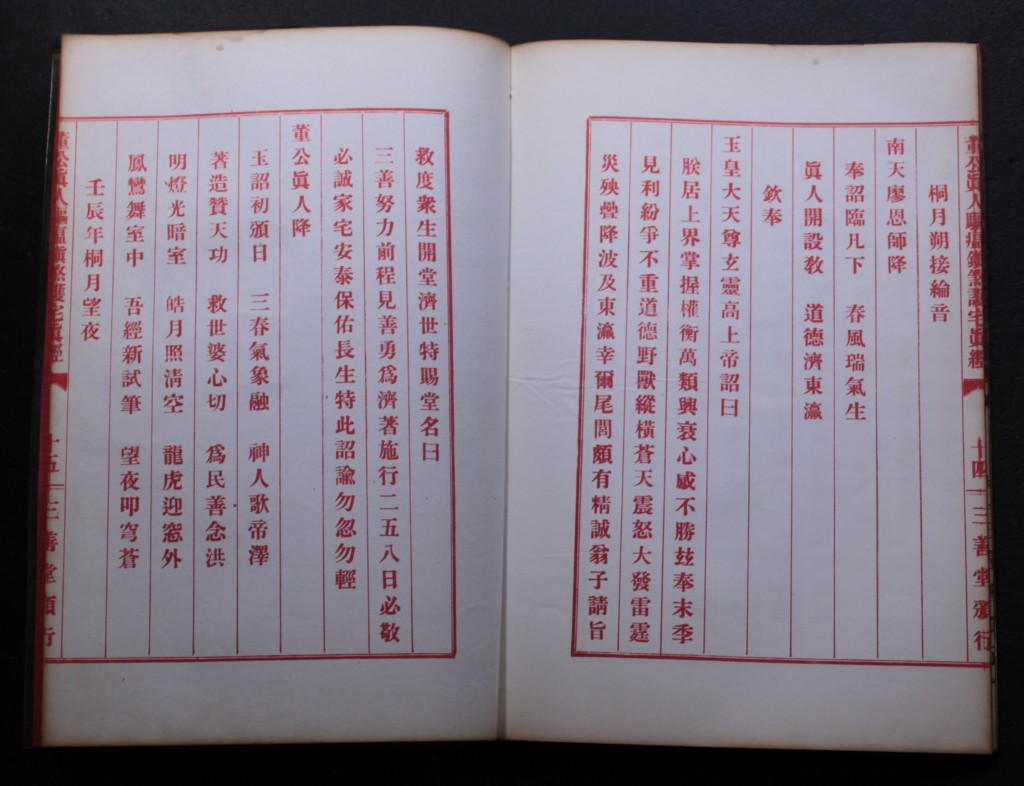 董公眞人驅瘟鎮煞護宅眞經
十四
三善堂頒行
桐月朔接綸音
南天廖恩師降
奉詔臨凡下　春風瑞氣生
眞人開設敎　道德濟東瀛
欽奉
玉皇大天尊玄靈高上帝詔曰
朕居上界掌握權衡萬類興衰心感不勝玆奉末季
見利紛爭不重道德野獸縱橫蒼天震怒大發雷霆
災殃疊降波及東瀛幸爾尾閭頗有精誠翁子請旨
救度衆生開堂濟世特賜堂名曰
三善努力前程見善勇爲濟著施行二五八日必敬
必誠家宅安泰保佑長生特此詔諭勿忽勿輕
董公眞人降
玉詔初頒日　三春氣象融　神人歌帝澤
著造贊天功　救世婆心切　爲民善念洪
明燈光暗室　皓月照淸空　龍虎迎窓外
鳳鸞舞室中　吾經新試筆　望夜叩穹蒼
壬辰年桐月望夜
董公眞人驅瘟鎮煞護宅眞經
十五
三善堂頒行